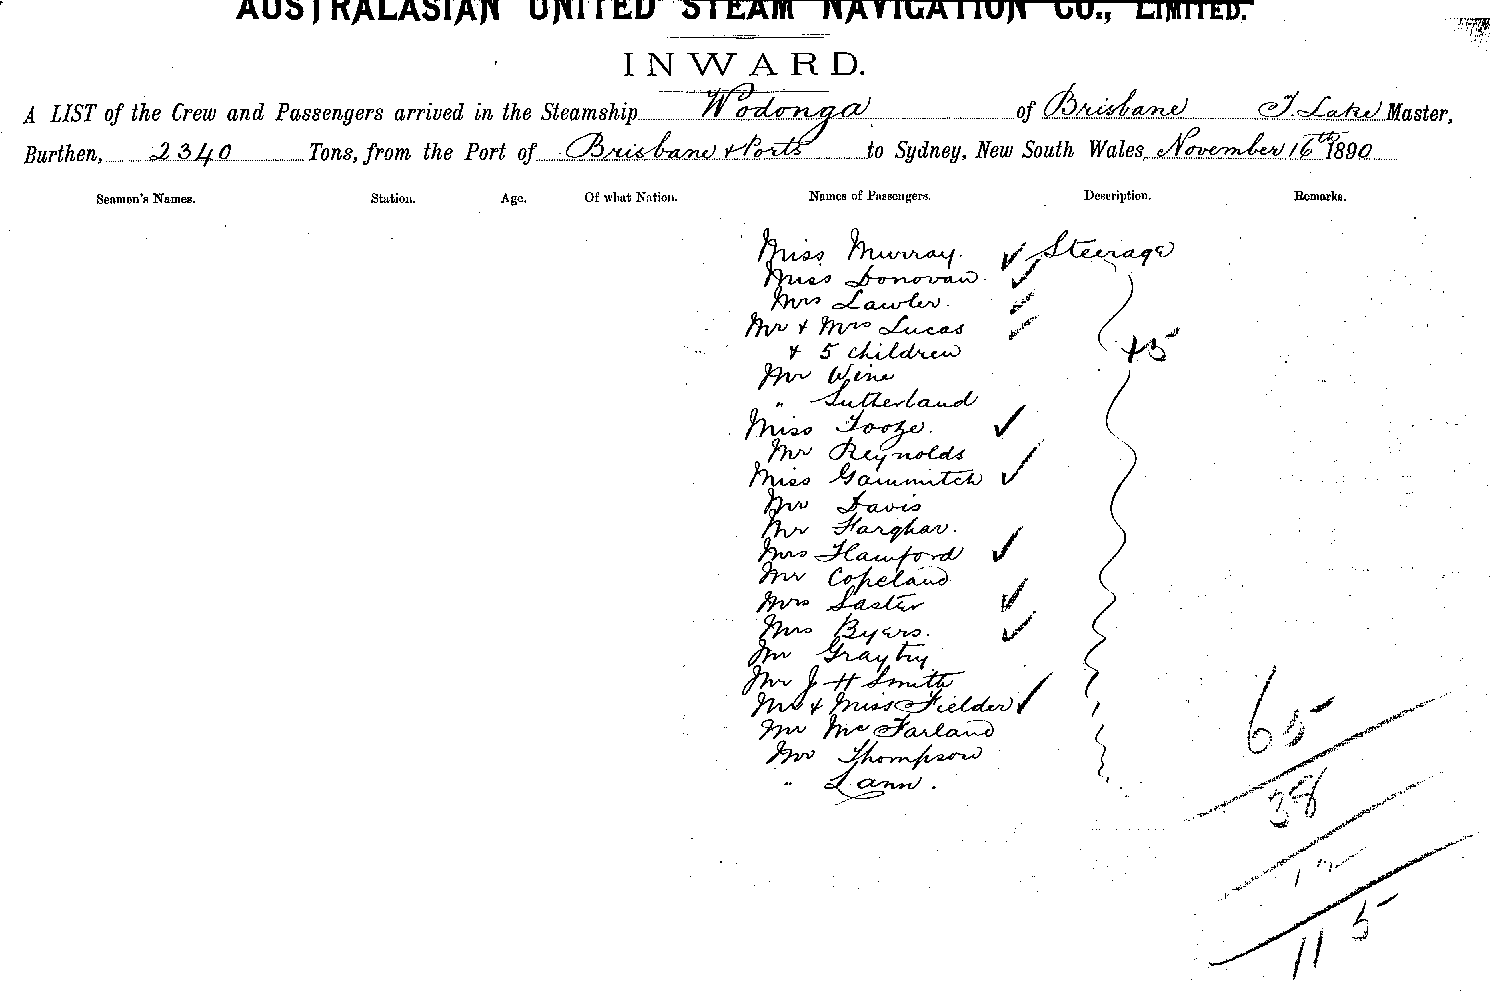 AUSTRALASIAN UNITED STEAM NAVIGATION CO., LIMITED.
INWARD.
A LIST of the Crew and Passengers arrived in the Steamship Wodonga of Brisbane T. Lake Master,
Burthen, 2340 Tons, from the Port of Brisbane & Ports to Sydney, New South Wales, November 16th 1890
Seamen's Names. Station. Age. Of what Nation. Names of Passengers. Description. Remarks.
Miss Murray. ✓ Steerage
Miss Donovan. ✓
Mrs Lawler. ✓
Mr & Mrs Lucas ✓
& 5 children +5
Mr Wine
" Sutherland
Miss Tooze. ✓
Mr Reynolds
Miss Gammitch ✓
Mr Davis
Mr
Mrs Hawford ✓
Mr Copeland
Mrs ✓
Mrs Byers. ✓
Mr
Mr J H Smith
Mr & Miss Fielder ✓
Mr McFarland
Mr Thompson
" Lann.
65
38
12
115